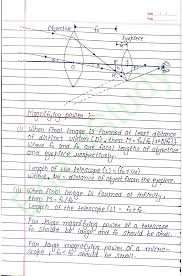 Objective
Eyepiece
Magnifying power :-
(i) When final image is formed at least distance
of distinct vision (D), then M = fo/fe [1+fe/D]
where fo and fe are focal lengths of objective
and eyepiece respectively.
Length of the telescope (L) = fo + ue
where, ue = distance of object from the eyepiece.
(ii) When final image is formed at infinity,
then M = fo/fe
Length of the telescope (L) = fo + fe
For large magnifying power of a telescope
fo should be large and fe should be small.
For large magnifying power of a micro-
scope, fo < fe should be small.